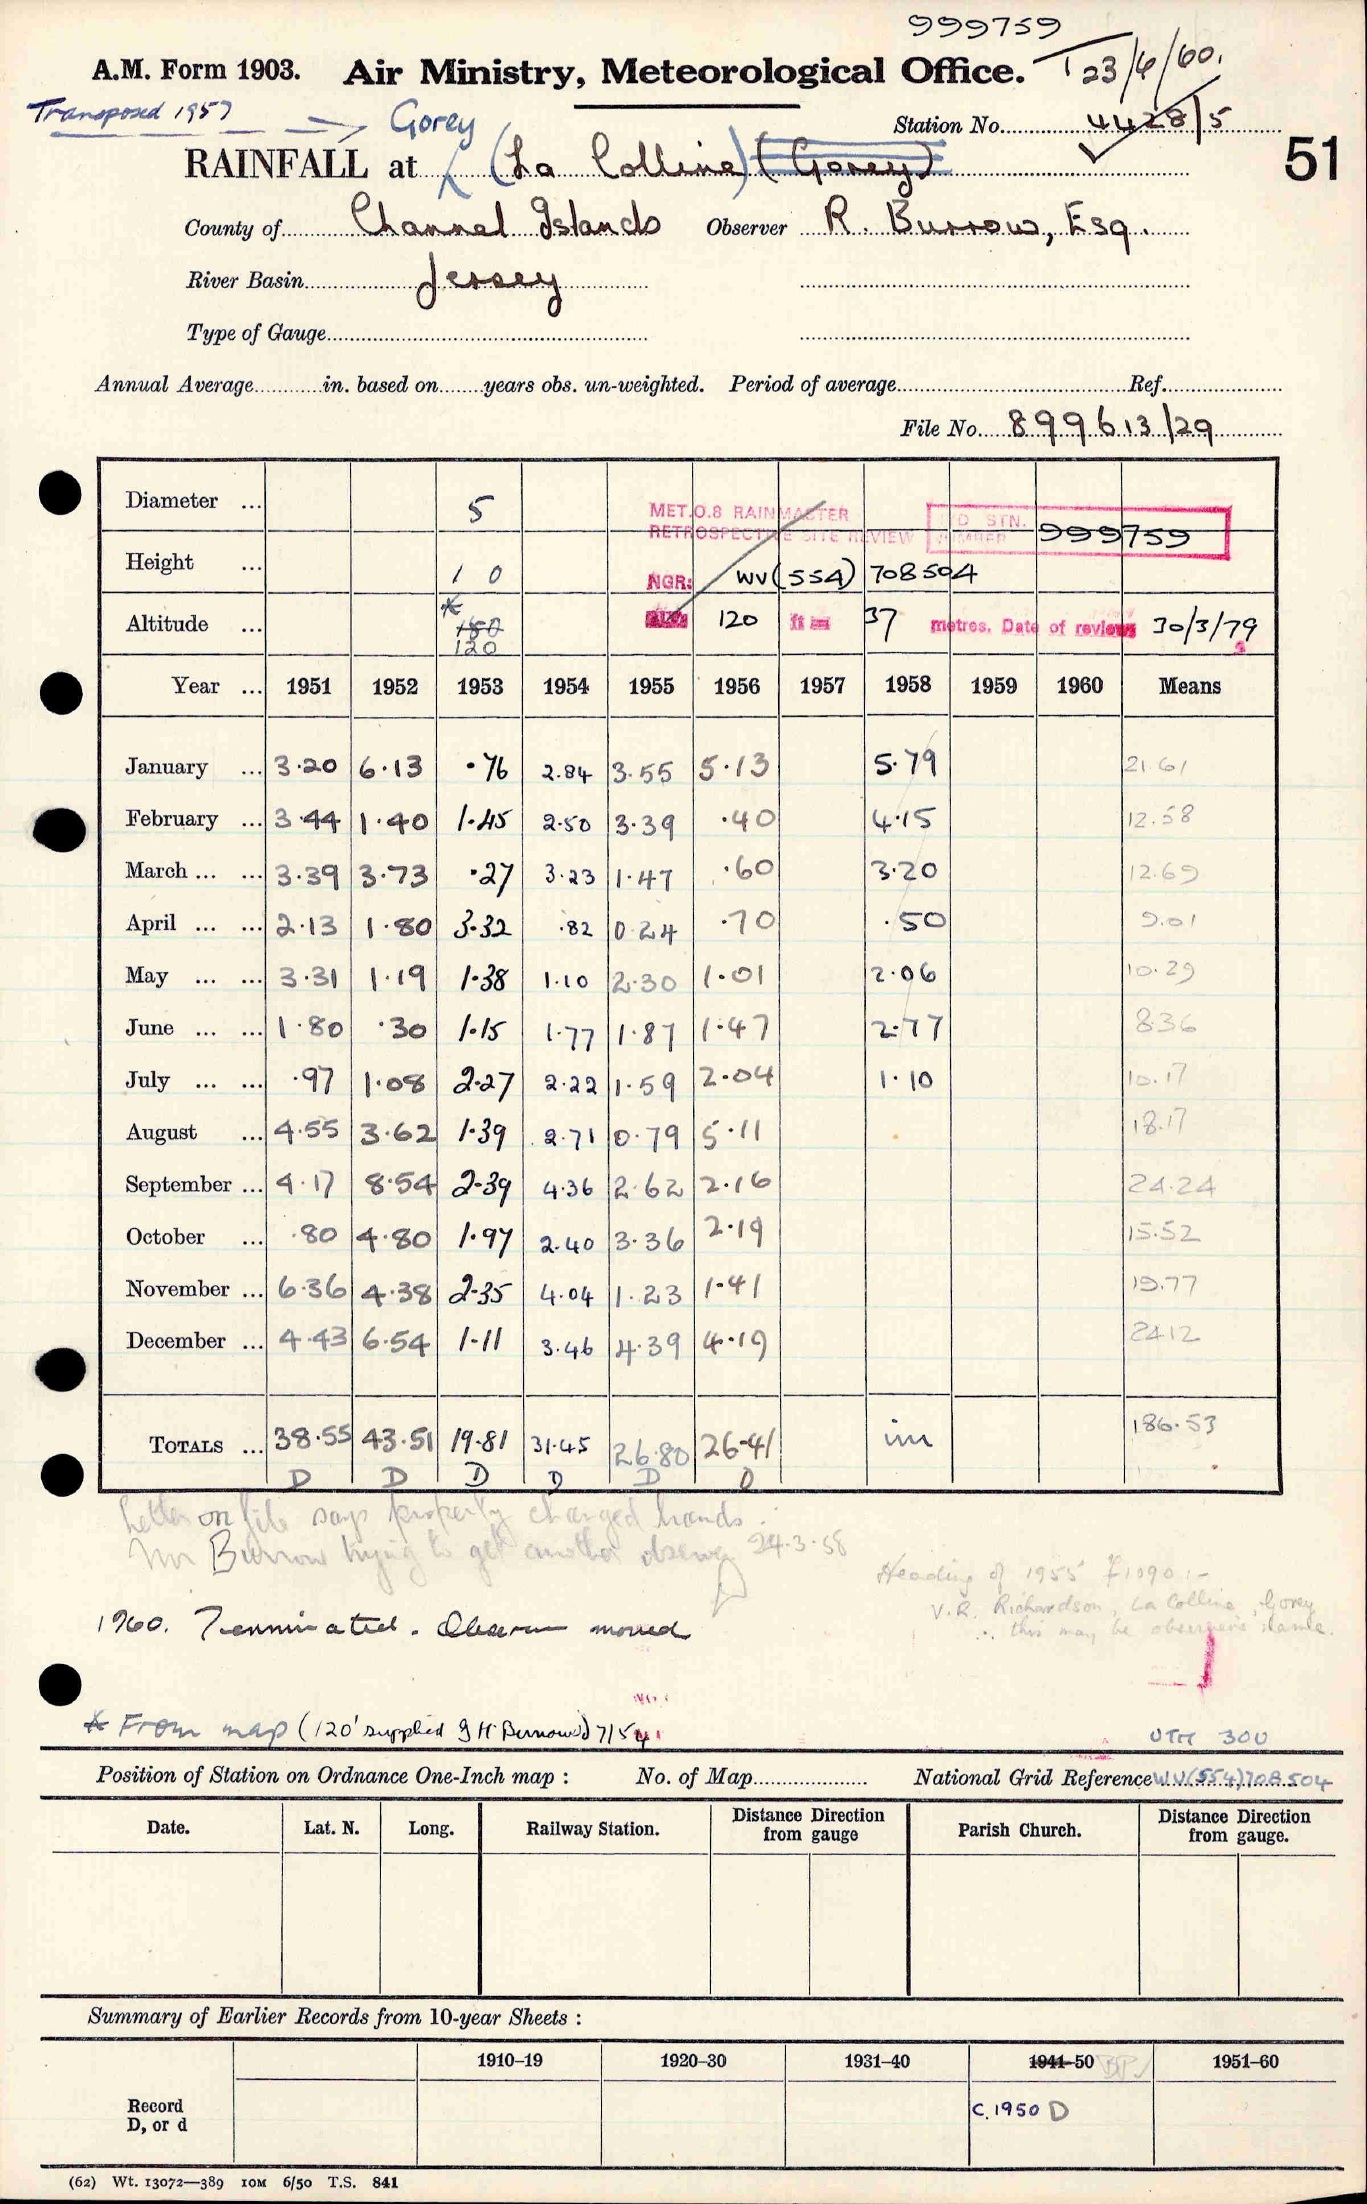 999759
A.M. Form 1903. Air Ministry, Meteorological Office. T 23/6/60.
Transposed 1957 Gorey
Station No. 4428/5
RAINFALL at (La Colline) (Gorey) 51
County of Channel Islands Observer R. Burrow, Esq.
River Basin Jersey
Type of Gauge
Annual Average in. based on years obs. un-weighted. Period of average Ref.
File No. 899613/29
Diameter ... 5 MET.O.8 RAINMASTER STN.
RETROSPECTIVE SITE REVIEW NUMBER 999759
Height ... 1 0 NGR: WV(554) 708504
Altitude ... * 180 120 120 ft = 37 metres. Date of review 30/3/79
Year ... 1951 1952 1953 1954 1955 1956 1957 1958 1959 1960 Means
January ... 3.20 6.13 .76 2.84 3.55 5.13 5.79 21.61
February ... 3.44 1.40 1.45 2.50 3.39 .40 4.15 12.58
March ... ... 3.39 3.73 .27 3.23 1.47 .60 3.20 12.69
April ... ... 2.13 1.80 3.32 .82 0.24 .70 .50 9.01
May ... ... 3.31 1.19 1.38 1.10 2.30 1.01 2.06 10.29
June ... ... 1.80 .30 1.15 1.77 1.87 1.47 2.77 8.36
July ... ... .97 1.08 2.27 2.22 1.59 2.04 1.10 10.17
August ... 4.55 3.62 1.39 2.71 0.79 5.11 18.17
September ... 4.17 8.54 2.39 4.36 2.62 2.16 24.24
October ... .80 4.80 1.97 2.40 3.36 2.19 15.52
November ... 6.36 4.38 2.35 4.04 1.23 1.41 19.77
December ... 4.43 6.54 1.11 3.46 4.39 4.19 24.12
TOTALS ... 38.55 43.51 19.81 31.45 26.80 26.41 im 186.53
D D D D D D
Letter on file says property changed hands.
Mr Burrow trying to get another observer 24.3.58
Heading of 1955 F1090:-
V.R. Richardson, La Colline, Gorey
∴ this may be observer's name.
1960. Terminated. Observer moved
* From map (120' supplied by Mr Burrow) 7/54
UTM 300
Position of Station on Ordnance One-Inch map : No. of Map National Grid Reference WV(554)708504
Date. Lat. N. Long. Railway Station. Distance Direction from gauge Parish Church. Distance Direction from gauge.
Summary of Earlier Records from 10-year Sheets :
1910–19 1920–30 1931–40 1941–50 1951–60
Record
D, or d C.1950 D
(62) Wt. 13072—389 10M 6/50 T.S. 841